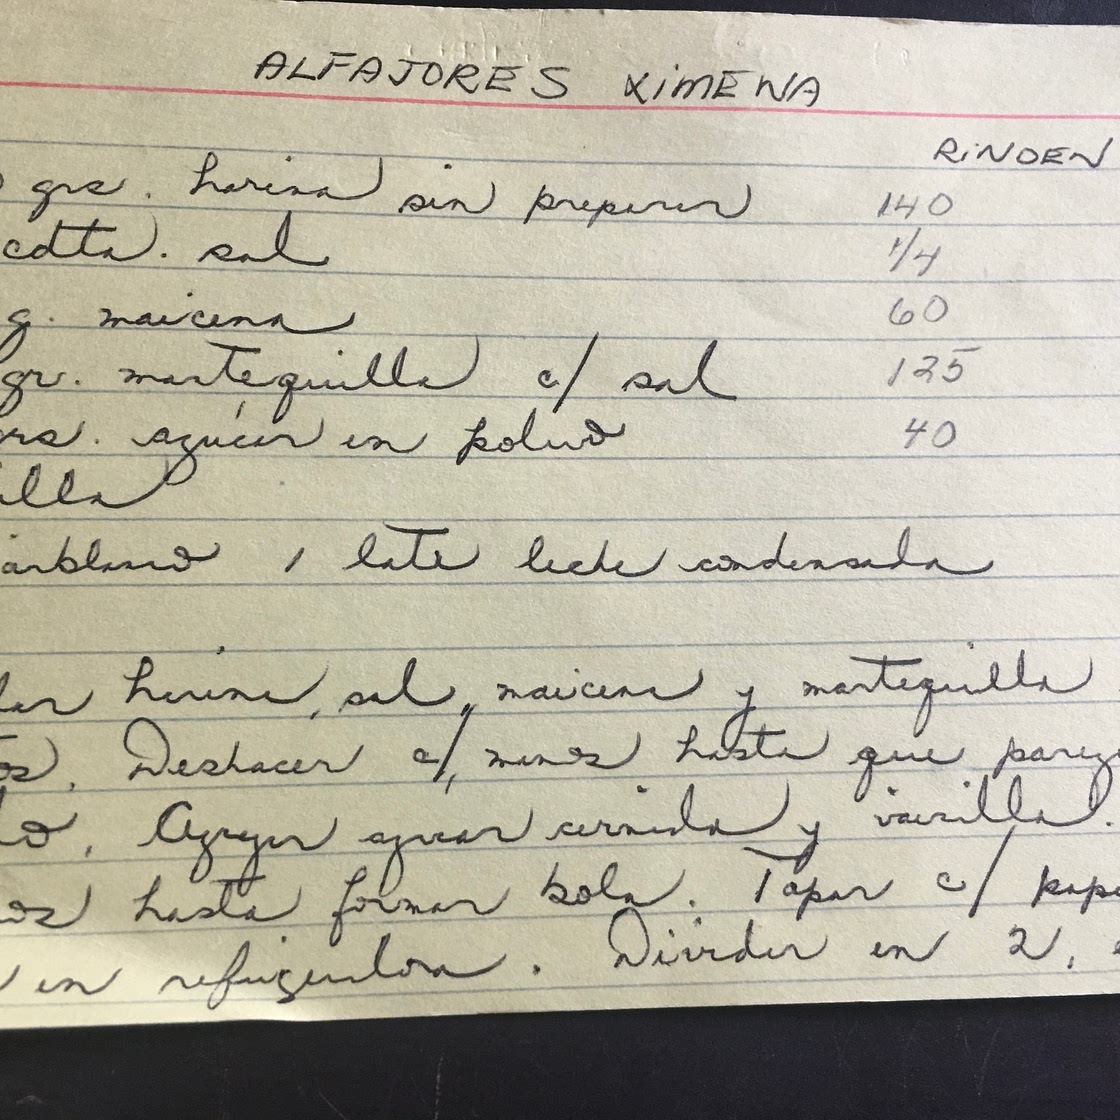 ALFAJORES XIMENA
RINDEN
grs. harina sin preparar 140
cdtta. sal 1/4
g. maicena 60
gr. mantequilla c/ sal 125
grs. azúcar en polvo 40
illa
arblanco 1 lata leche condensada
lar harina, sal, maicena y mantequilla
os. Deshacer c/ manos hasta que parezc
do. Agregar azucar cernida y vainilla.
os hasta formar bola. Tapar c/ pape
en refrigeradora. Dividir en 2,